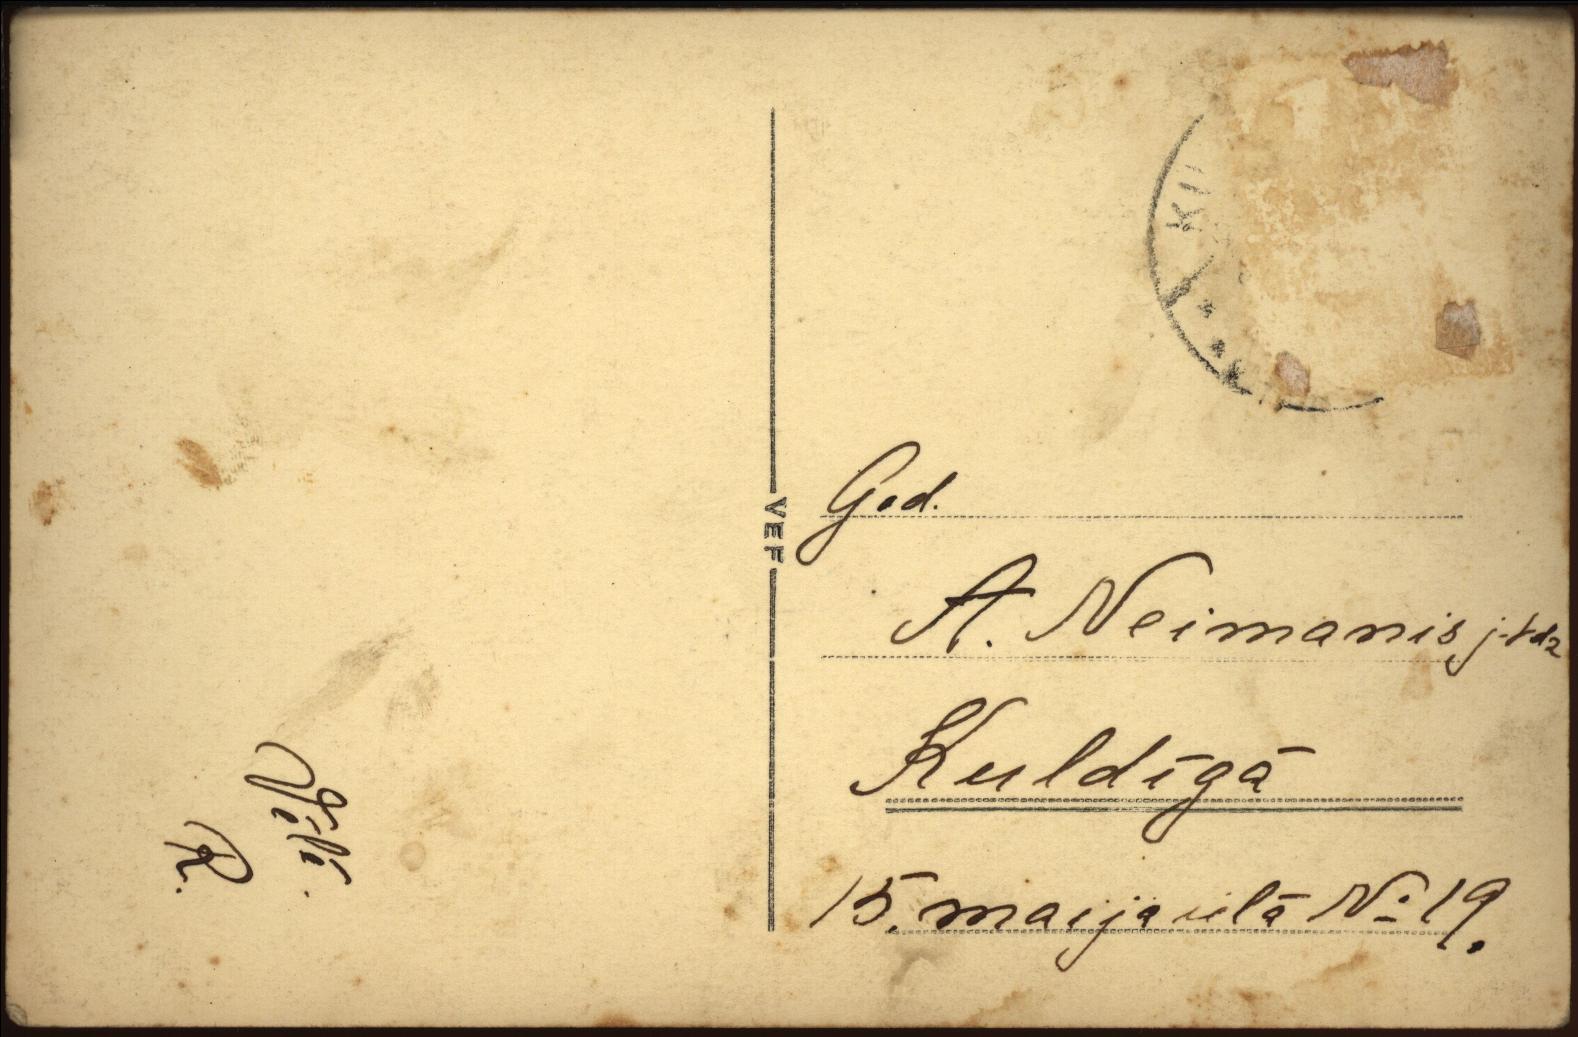 VEF
God.
A. Neimanis j. kdz
Kuldīgā
15. maija ielā № 19.
R.